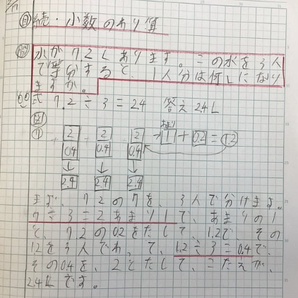 続・小数のわり算
水が7.2Lあります。この水を3人
で等分すると1人分は何Lになり
ますか。
式 7.2÷3=24 答え2.4L
図
① 2 2 2 → 1 + 0.2 = 1.2
0.4 0.4 0.4
2.4 2.4 2.4
まず、7.2の7を、3人で分けます。
7÷3=2あまり1で、あまりの1
と、7.2の0.2をたして、1.2で、その
1.2を3人でわって、1.2÷3=0.4で、
その0.4を、2とたして、こたえが、
2.4Lです。